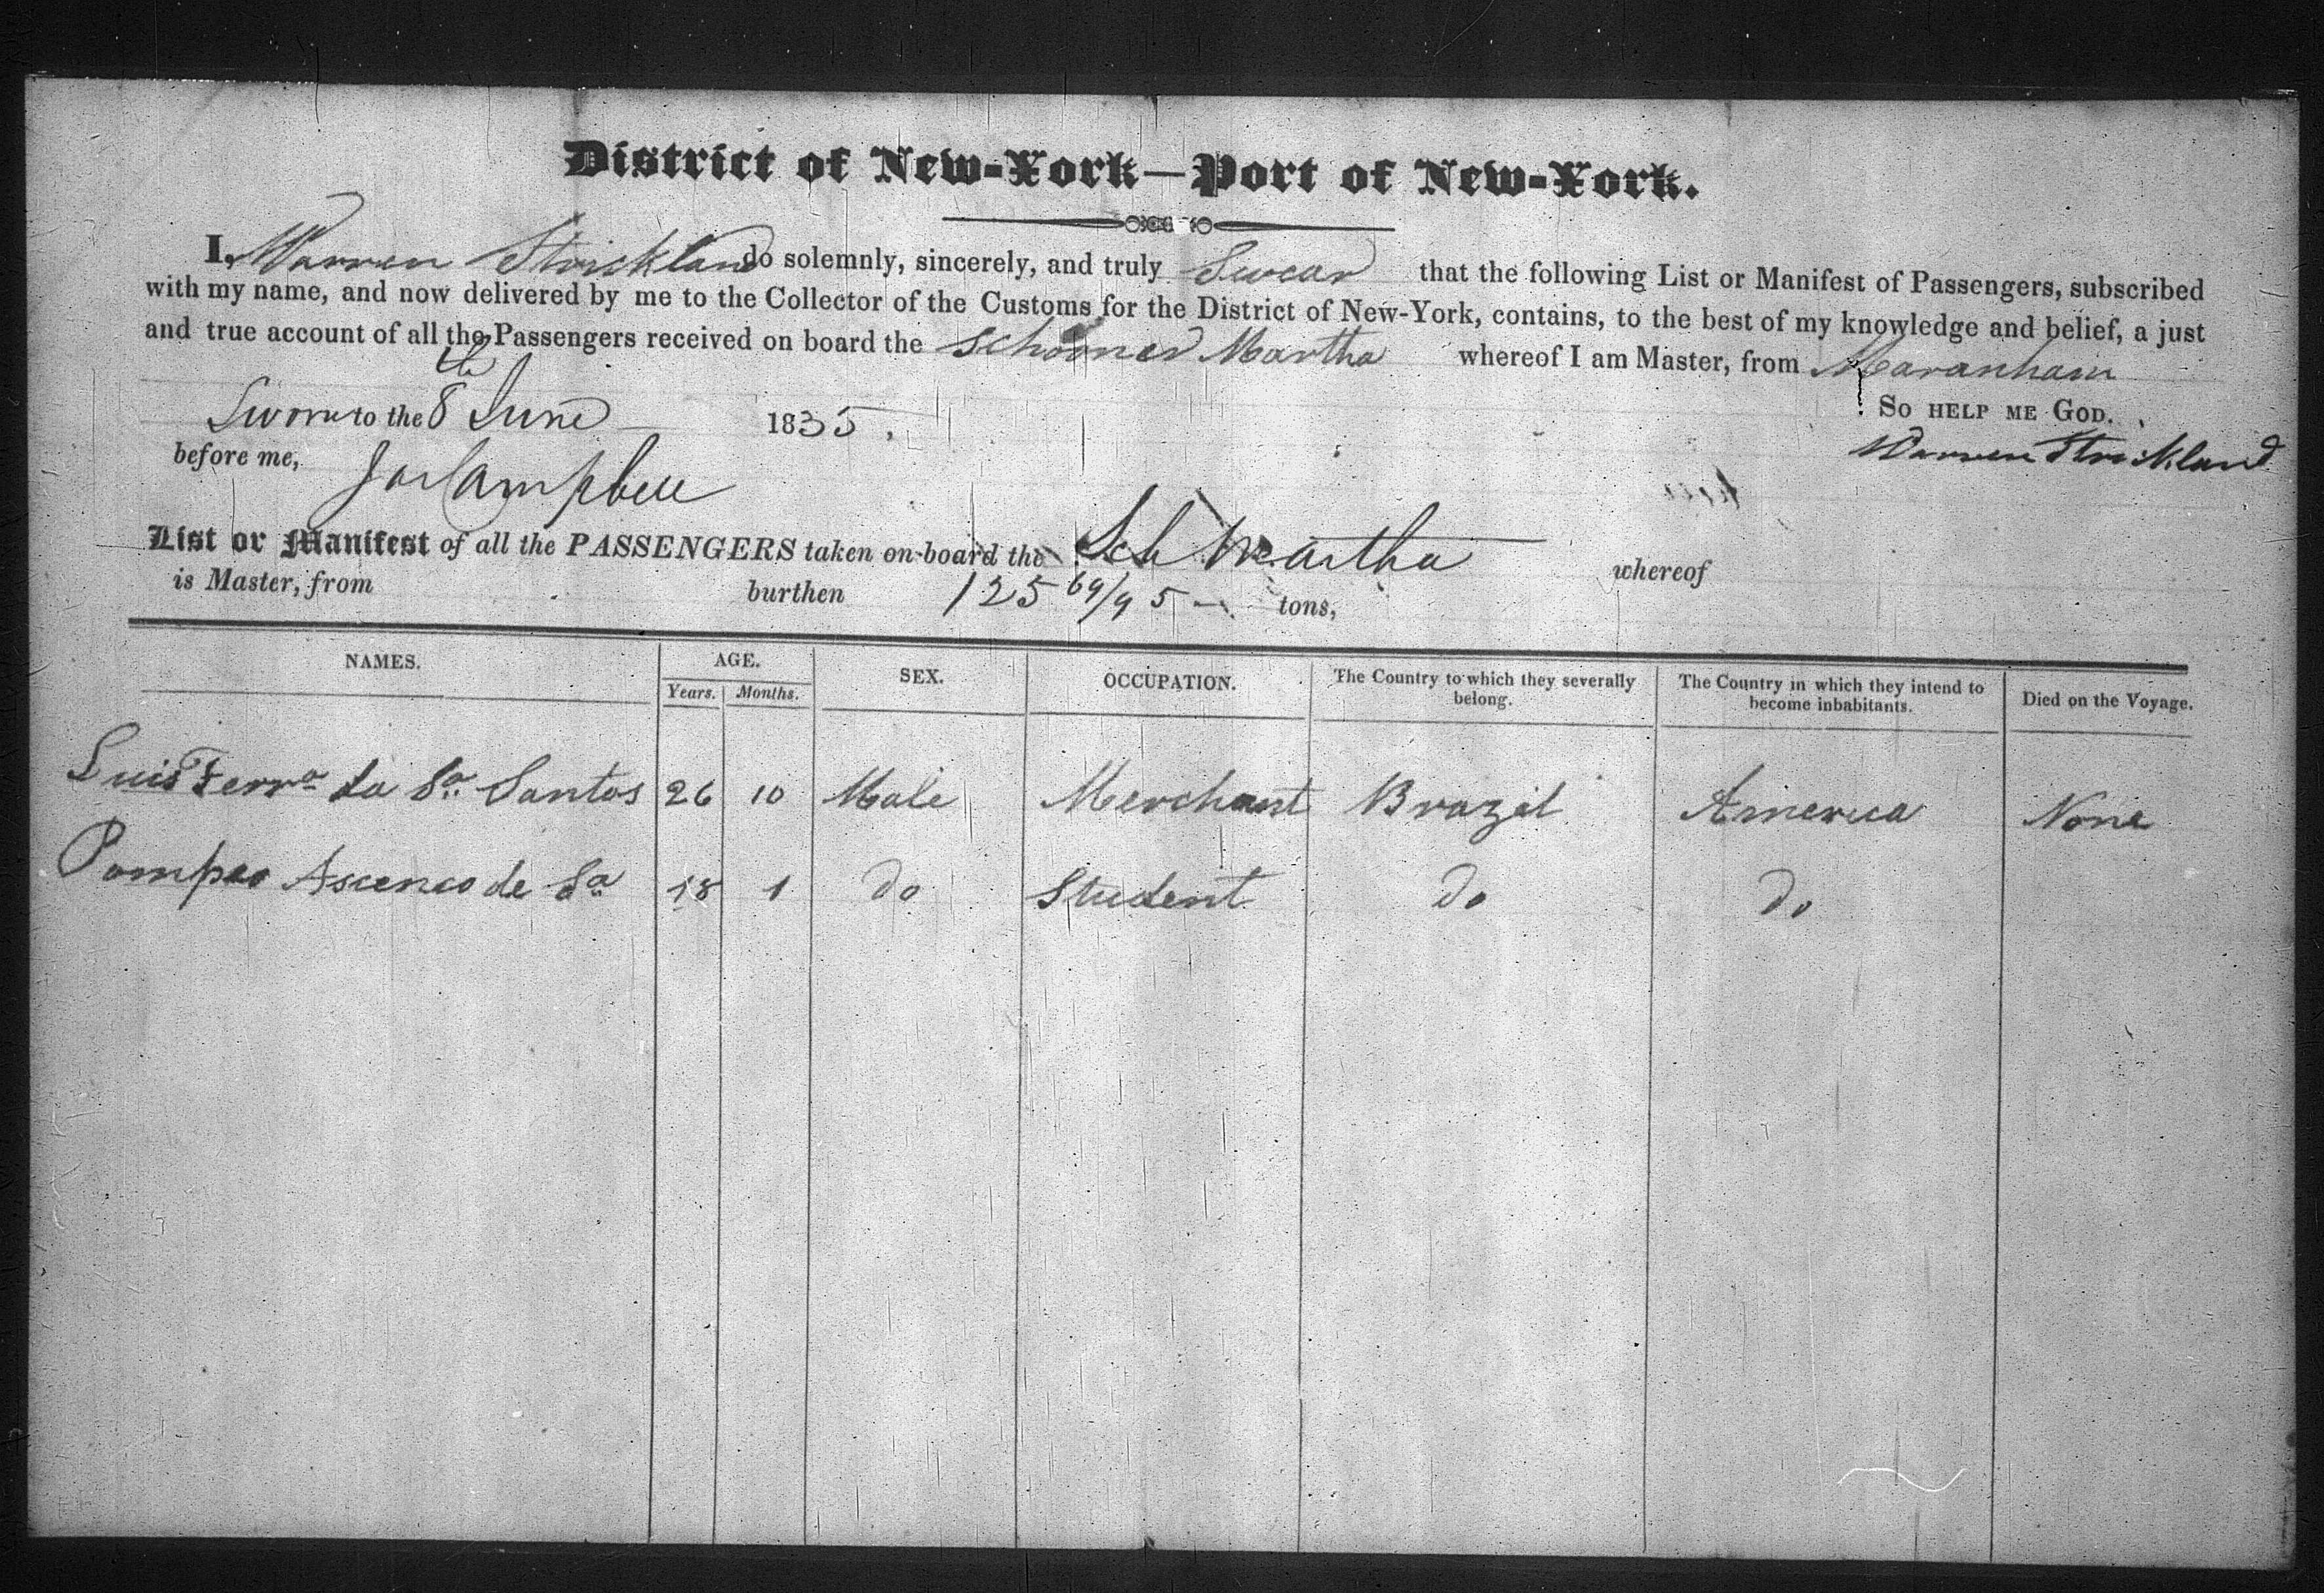 District of New-York—Port of New-York.
I, Warren Strickland do solemnly, sincerely, and truly Swear that the following List or Manifest of Passengers, subscribed
with my name, and now delivered by me to the Collector of the Customs for the District of New-York, contains, to the best of my knowledge and belief, a just
and true account of all the Passengers received on board the Schooner Martha whereof I am Master, from Maranham
Sworn to the 8th June 1835. So help me God.
before me, Jas Campbell Warren Strickland
List or Manifest of all the PASSENGERS taken on board the Sch Martha whereof
is Master, from burthen 125 69/95 tons,
NAMES. AGE. SEX. OCCUPATION. The Country to which they severally belong. The Country in which they intend to become inhabitants. Died on the Voyage.
Years. Months.
Luis Ferra da Sa Santos 26 10 Male Merchant Brazil America None
Pompeo Ascenco de Sa 18 1 do Student do do